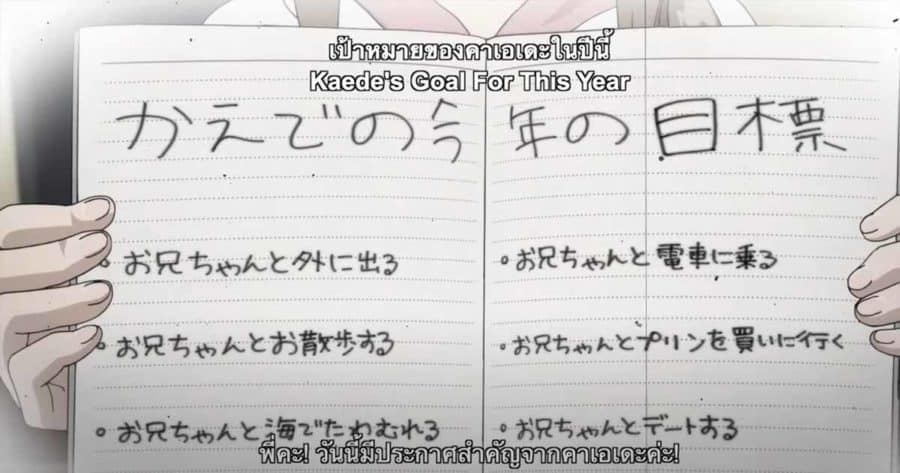 เป้าหมายของคาเอเดะในปีนี้
Kaede's Goal For This Year
かえでの今年の目標
◦お兄ちゃんと外に出る
◦お兄ちゃんとお散歩する
◦お兄ちゃんと海でたわむれる
◦お兄ちゃんと電車に乗る
◦お兄ちゃんとプリンを買いに行く
◦お兄ちゃんとデートする
พี่คะ! วันนี้มีประกาศสำคัญจากคาเอเดะค่ะ!